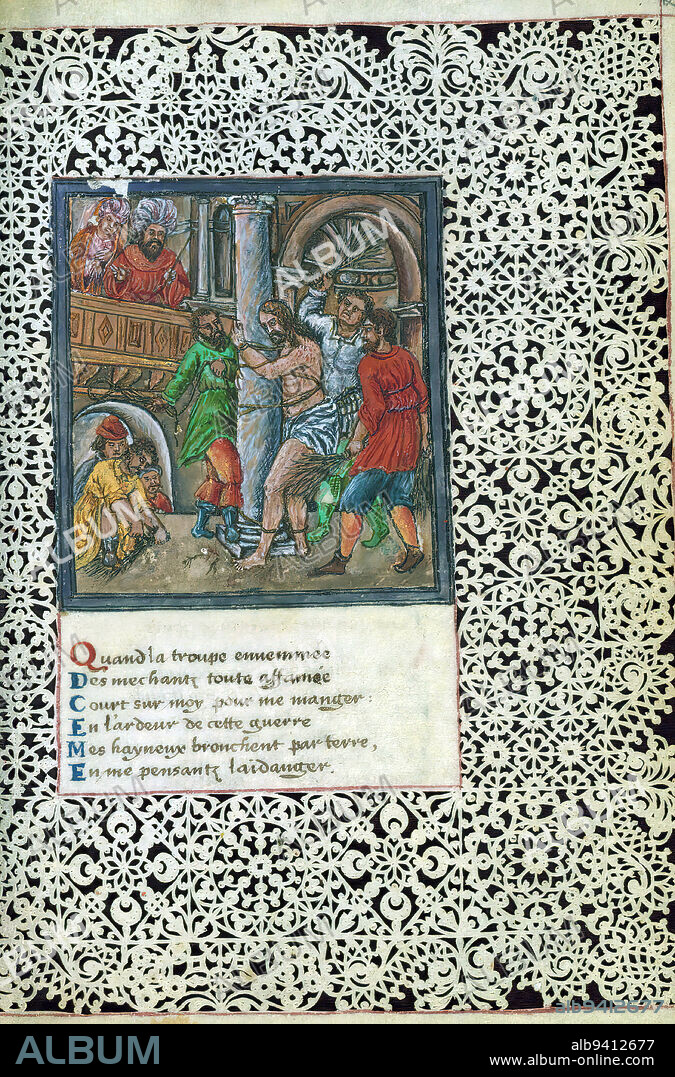 Quand la troupe envenimee
Des mechantz toute affamée
Court sur moy pour me manger:
En l'ardeur de cette guerre
Mes hayneux bronchent par terre,
En me pensantz laidanger.
ALBUM
alb9412677
ALBUM
alb9412677
www.album-online.com